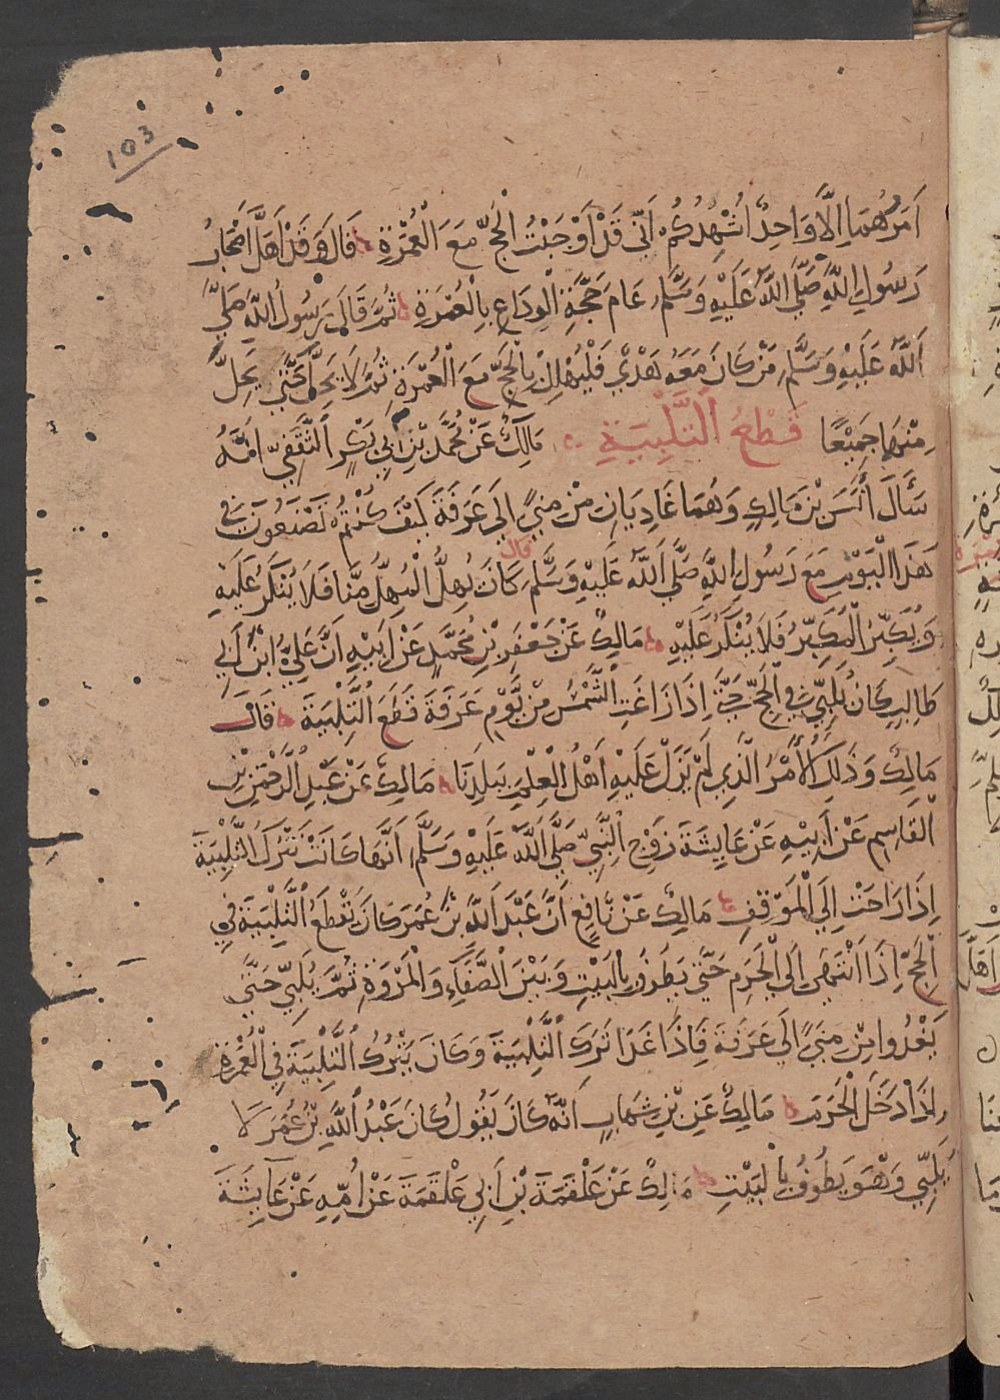 103
اَمْرُهُمَا اِلَّا وَاحِدٌ اُشْهِدُكُمْ اَنِّي قَدْ اَوْجَبْتُ الْحَجَّ مَعَ الْعُمْرَةِ قَالَ وَقَدْ اَهَلَّ اَصْحَابُ
رَسُولِ اللَّهِ صَلَّي اللَّهُ عَلَيْهِ وَسَلَّمَ عَامَ حَجَّةِ الْوِدَاعِ بِالْعُمْرَةِ ثُمَّ قَالَ رَسُولُ اللَّهِ صَلَّي
اَللَّهُ عَلَيْهِ وَسَلَّمَ مَنْ كَانَ مَعَهُ هَدْيٌ فَلْيُهْلِلْ بِالْحَجِّ مَعَ الْعُمْرَةِ ثُمَّ لَا يَحِلُّ حَتَّي يَحِلَّ
مِنْهُمَا جَمِيْعًا قَطْعُ التَّلْبِيَةِ مَالِكٌ عَنْ مُحَمَّدِ بْنِ اَبِي بَكْرٍ الثَّقَفِيِّ اَنَّهُ
سَأَلَ أَنَسَ بْنَ مَالِكٍ وَهُمَا غَادِيَانِ مِنْ مِنيً اِلَي عَرَفَةَ كَيْفَ كُنْتُمْ تَصْنَعُونَ فِي
هَذَا الْيَوْمِ مَعَ رَسُولِ اللَّهِ صَلَّي اللَّهُ عَلَيْهِ وَسَلَّمَ قال كَانَ يُهِلُّ الْمُهِلُّ مِنَّا فَلَا يُنْكَرُ عَلَيْهِ
وَيُكَبِّرُ الْمُكَبِّرُ فَلَا يُنْكَرُ عَلَيْهِ مَالِكٌ عَنْ جَعْفَرِ بْنِ مُحَمَّدٍ عَنْ اَبِيْهِ اَنَّ عَلِيَّ ابْنَ اَبِي
طَالِبٍ كَانَ يُلَبِّي فِي الْحَجِّ حَتَّي اِذَا زَاغَتِ الشَّمْسُ مِنْ يَّوْمِ عَرَفَةَ قَطَعَ التَّلْبِيَةَ قَالَ
مَالِكٌ وَذَلِكَ الْأَمْرُ الَّذِي لَمْ يَزَلْ عَلَيْهِ اَهْلُ الْعِلْمِ بِبَلَدِنَا مَالِكٌ عَنْ عَبْدِ الرَّحْمَنِ بْنِ
الْقَاسِمِ عَنْ اَبِيْهِ عَنْ عَايِشَةَ زَوْجِ النَّبِيِّ صَلَّي اللَّهُ عَلَيْهِ وَسَلَّمَ اَنَّهَا كَانَتْ تَتْرُكُ التَّلْبِيَةَ
اِذَا رَاحَتْ اِلَي الْمَوْقِفِ مَالِكٌ عَنْ نَّافِعٍ اَنَّ عَبْدَ اللَّهِ بْنَ عُمَرَ كَانَ يَقْطَعُ التَّلْبِيَةَ فِي
الْحَجِّ اِذَا انْتَهَي اِلَي الْحَرَمِ حَتَّي يَطُوفَ بِالْبَيْتِ وَبَيْنَ الصَّفَاءِ وَالْمَرْوَةِ ثُمَّ يُلَبِّي حَتَّي
يَغْدُوا مِنْ مِنيً اِلَي عَرَفَةَ فَاِذَا غَدَا تَرَكَ التَّلْبِيَةَ وَكَانَ يَتْرُكُ التَّلْبِيَةَ فِي الْعُمْرَةِ
اِذَا دَخَلَ الْحَرَمَ مَالِكٌ عَنِ بْنِ شِهَابٍ اَنَّهُ كَانَ يَقُولُ كَانَ عَبْدُ اللَّهِ بْنُ عُمَرَ لَا
يُلَبِّي وَهْوَ يَطُوفُ بِالْبَيْتِ مَالِكٌ عَنْ عَلْقَمَةَ بْنِ اَبِي عَلْقَمَةَ عَنْ اُمِّهِ عَنْ عَايِشَةَ